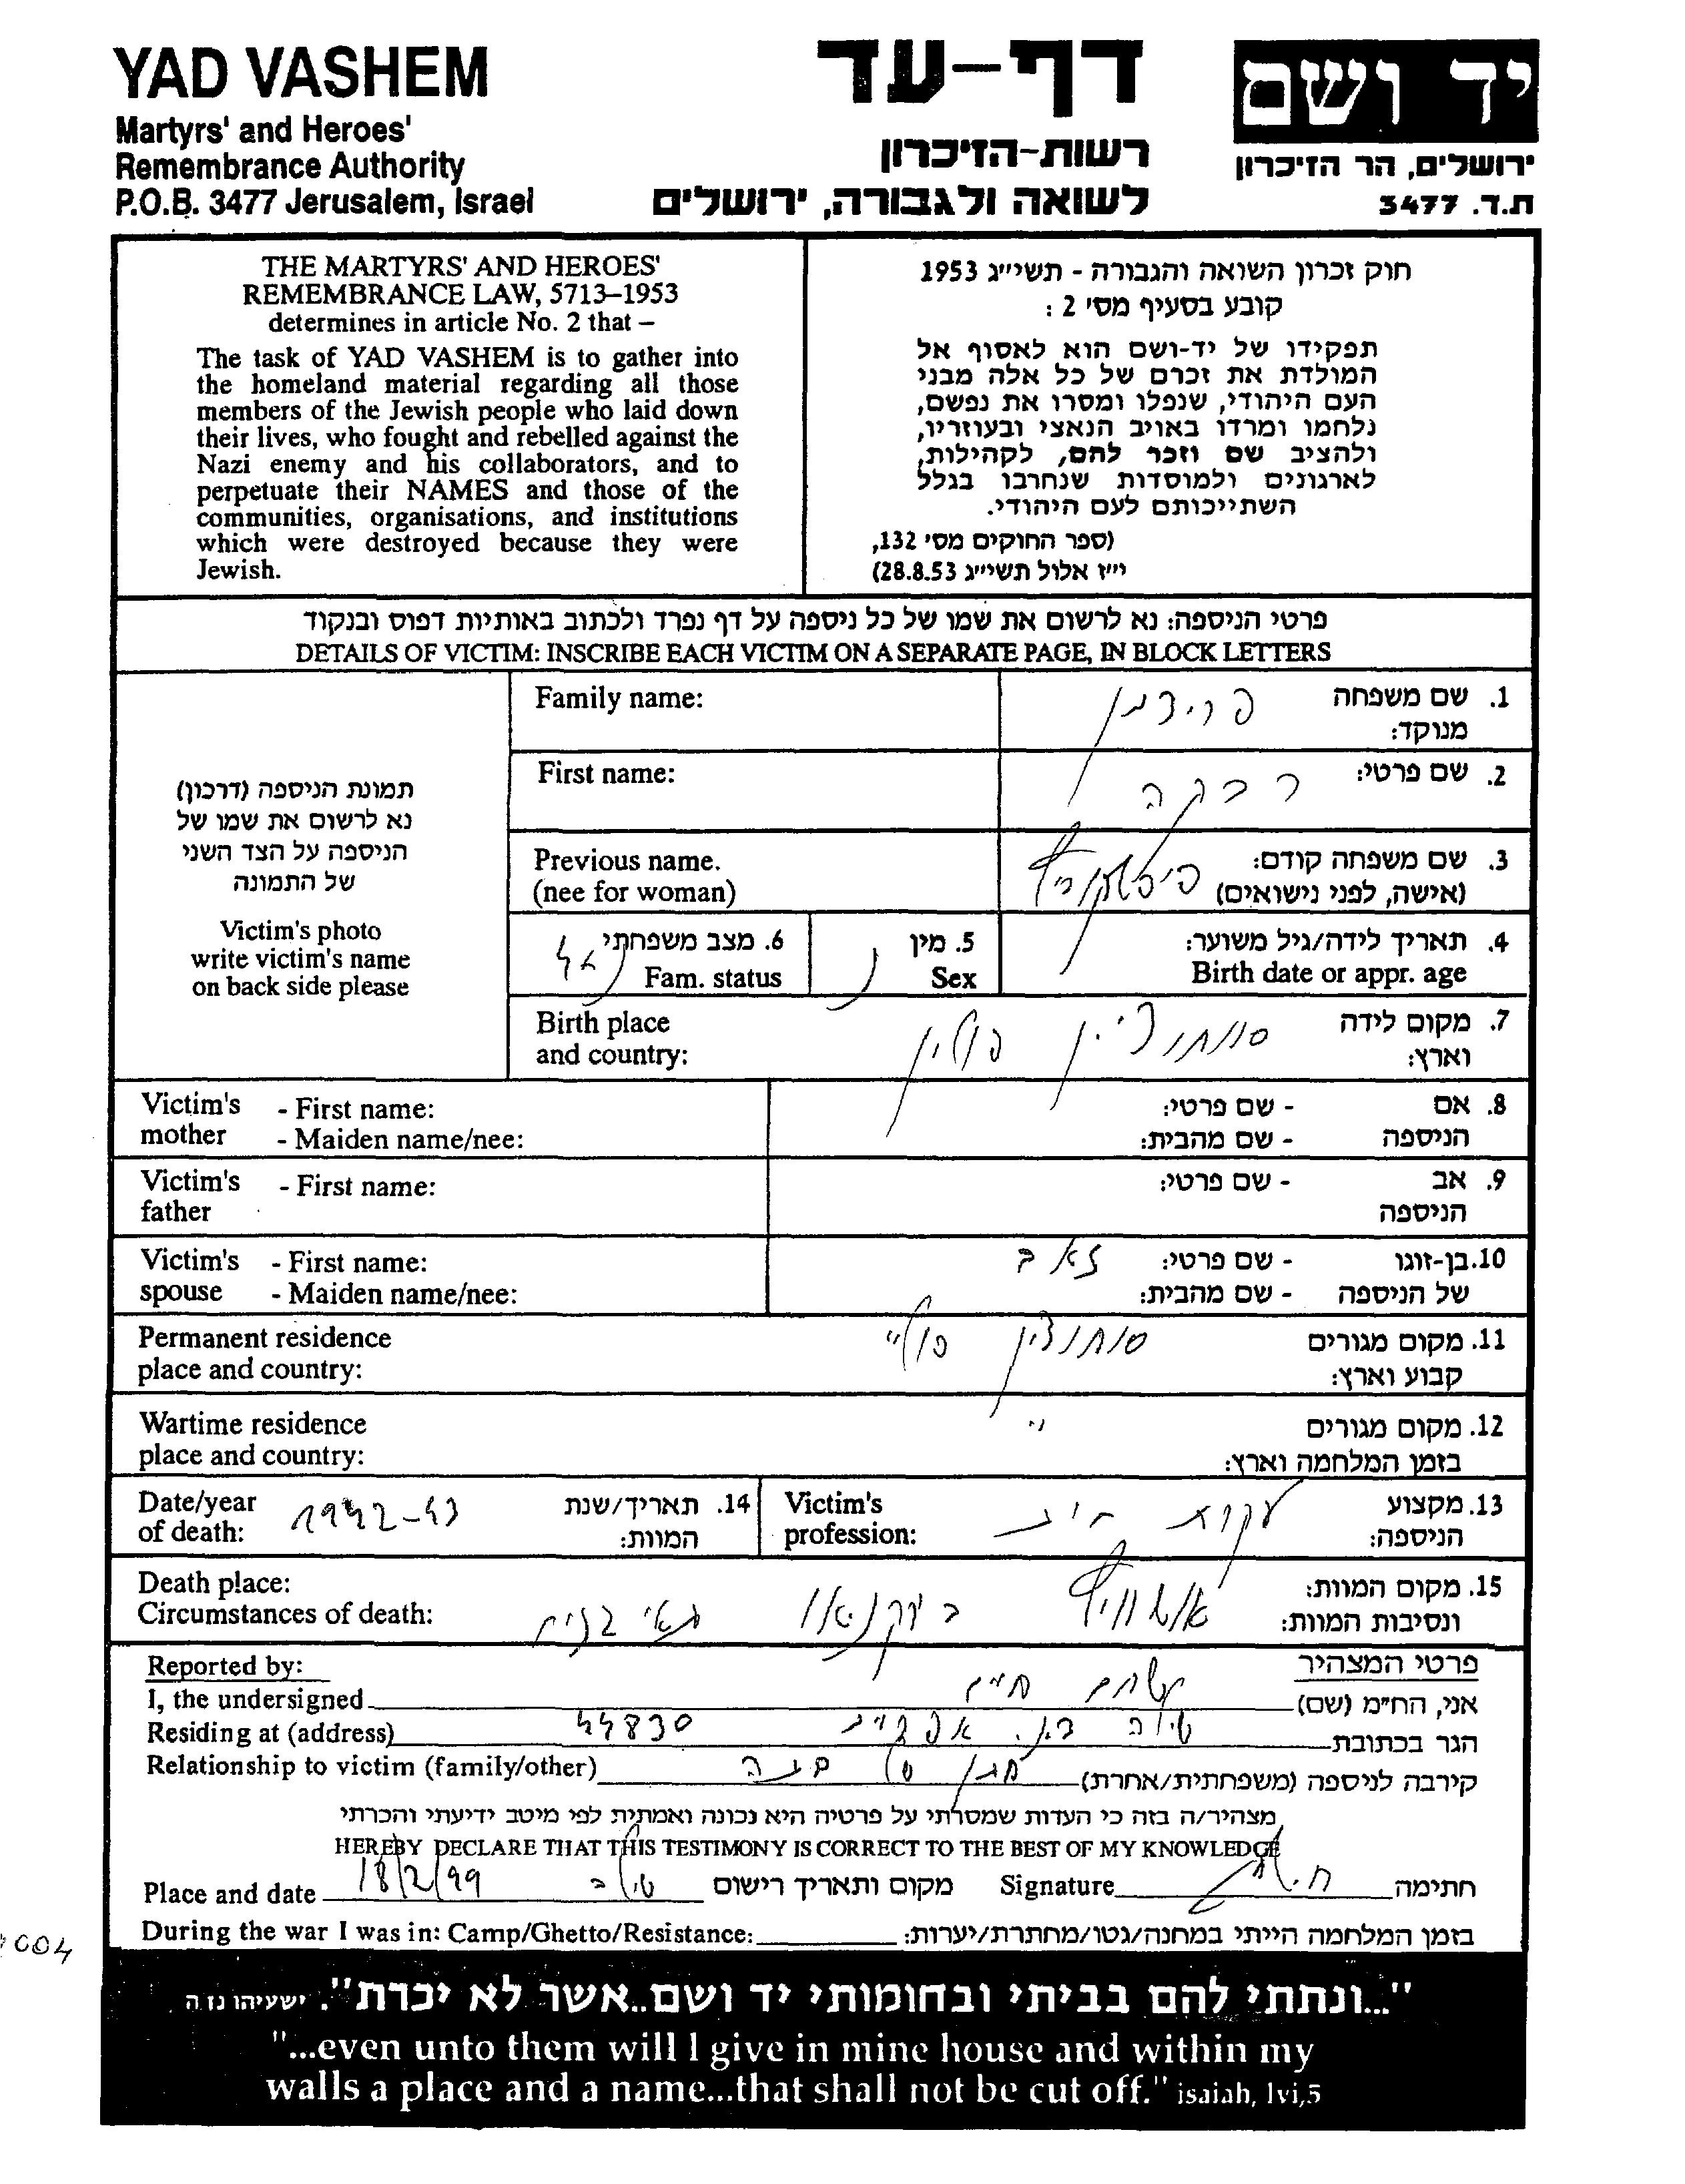 YAD VASHEM
Martyrs' and Heroes'
Remembrance Authority
P.O.B. 3477 Jerusalem, Israel
דף-עד
רשות-הזיכרון
לשואה ולגבורה, ירושלים
יד ושם
ירושלים, הר הזיכרון
ת.ד. 3477
THE MARTYRS' AND HEROES'
REMEMBRANCE LAW, 5713–1953
determines in article No. 2 that –
The task of YAD VASHEM is to gather into
the homeland material regarding all those
members of the Jewish people who laid down
their lives, who fought and rebelled against the
Nazi enemy and his collaborators, and to
perpetuate their NAMES and those of the
communities, organisations, and institutions
which were destroyed because they were
Jewish.
חוק זכרון השואה והגבורה - תשי״ג 1953
קובע בסעיף מס׳ 2 :
תפקידו של יד-ושם הוא לאסוף אל
המולדת את זכרם של כל אלה מבני
העם היהודי, שנפלו ומסרו את נפשם,
נלחמו ומרדו באויב הנאצי ובעוזריו,
ולהציב שם וזכר להם, לקהילות,
לארגונים ולמוסדות שנחרבו בגלל
השתייכותם לעם היהודי.
(ספר החוקים מס׳ 132,
י״ז אלול תשי״ג 28.8.53)
פרטי הניספה: נא לרשום את שמו של כל ניספה על דף נפרד ולכתוב באותיות דפוס ובנקוד
DETAILS OF VICTIM: INSCRIBE EACH VICTIM ON A SEPARATE PAGE, IN BLOCK LETTERS
תמונת הניספה (דרכון)
נא לרשום את שמו של
הניספה על הצד השני
של התמונה
Victim's photo
write victim's name
on back side please
Family name: פרידמן 1. שם משפחה
מנוקד:
First name: רבקה 2. שם פרטי:
Previous name. 3. שם משפחה קודם:
(nee for woman) (אישה, לפני נישואים)
6. מצב משפחתי 5. מין 4. תאריך לידה/גיל משוער:
Fam. status Sex נ Birth date or appr. age
Birth place סוחוצ'ין פולין 7. מקום לידה
and country: וארץ:
Victim's - First name: - שם פרטי: 8. אם
mother - Maiden name/nee: - שם מהבית: הניספה
Victim's - First name: - שם פרטי: 9. אב
father הניספה
Victim's - First name: זאב - שם פרטי: 10. בן-זוגו
spouse - Maiden name/nee: - שם מהבית: של הניספה
Permanent residence סוחוצין 11. מקום מגורים
place and country: קבוע וארץ:
Wartime residence " 12. מקום מגורים
place and country: בזמן המלחמה וארץ:
Date/year 1942-43 14. תאריך/שנת Victim's עקרת בית 13. מקצוע
of death: המוות: profession: הניספה:
Death place: 15. מקום המוות:
Circumstances of death: אושוויץ בירקנאו תאי גזים ונסיבות המוות:
Reported by: פרטי המצהיר
I, the undersigned חיים אני, הח״מ (שם)
Residing at (address) 44830 הגר בכתובת
Relationship to victim (family/other) חתן של קירבה לניספה (משפחתית/אחרת)
מצהיר/ה בזה כי העדות שמסרתי על פרטיה היא נכונה ואמתית לפי מיטב ידיעתי והכרתי
HEREBY DECLARE THAT THIS TESTIMONY IS CORRECT TO THE BEST OF MY KNOWLEDGE
Place and date 18/2/99 מקום ותאריך רישום Signature חתימה
During the war I was in: Camp/Ghetto/Resistance: בזמן המלחמה הייתי במחנה/גטו/מחתרת/יערות:
004
"...ונתתי להם בביתי ובחומותי יד ושם..אשר לא יכרת". ישעיהו נו ה
"...even unto them will I give in mine house and within my
walls a place and a name...that shall not be cut off." isaiah, lvi,5